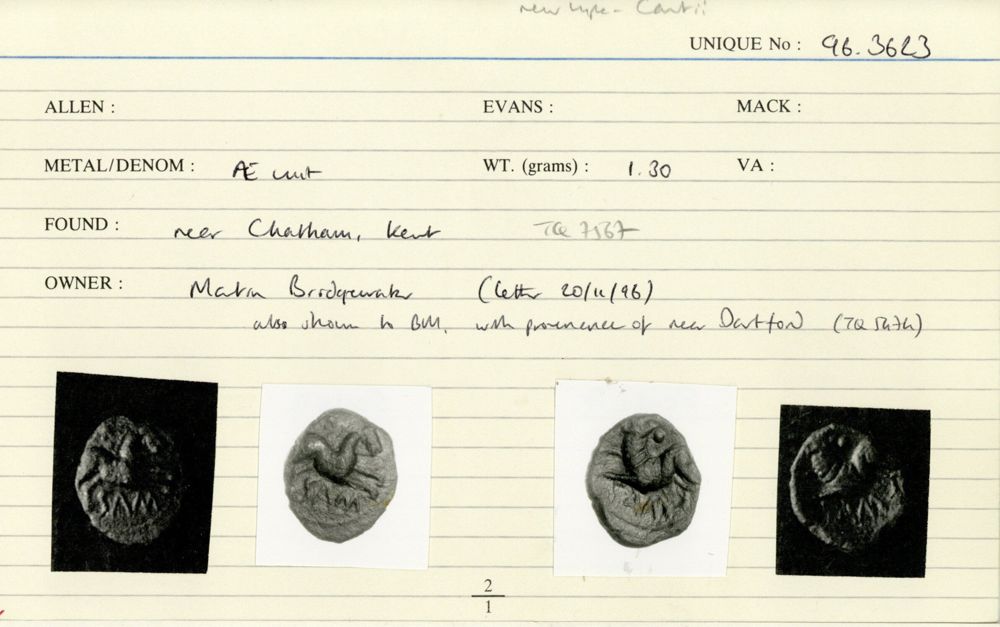 new type - Cantii
UNIQUE No : 96.3623
ALLEN : EVANS : MACK :
METAL/DENOM : Æ unit WT. (grams) : 1.30 VA :
FOUND : near Chatham, Kent TQ 7567
OWNER : Martin Bridgewater (letter 20/11/96)
also shown to BM, with provenance of near Dartford (TQ 5474)
2
1